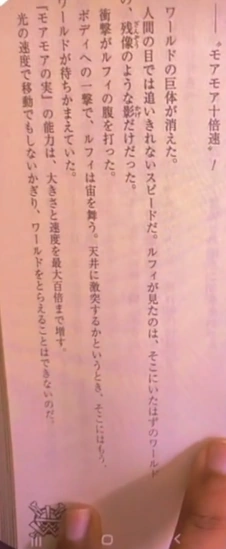 ――“モアモア十倍速”！
ワールドの巨体が消えた。
人間の目では追いきれないスピードだ。ルフィが見たのは、そこにいたはずのワールド
の、残像のような影だけだった。
衝撃がルフィの腹を打った。
ボディへの一撃で、ルフィは宙を舞う。天井に激突するかというとき、そこにはもう、
ワールドが待ちかまえていた。
『モアモアの実』の能力は、大きさと速度を最大百倍まで増す。
光の速度で移動でもしないかぎり、ワールドをとらえることはできないのだ。